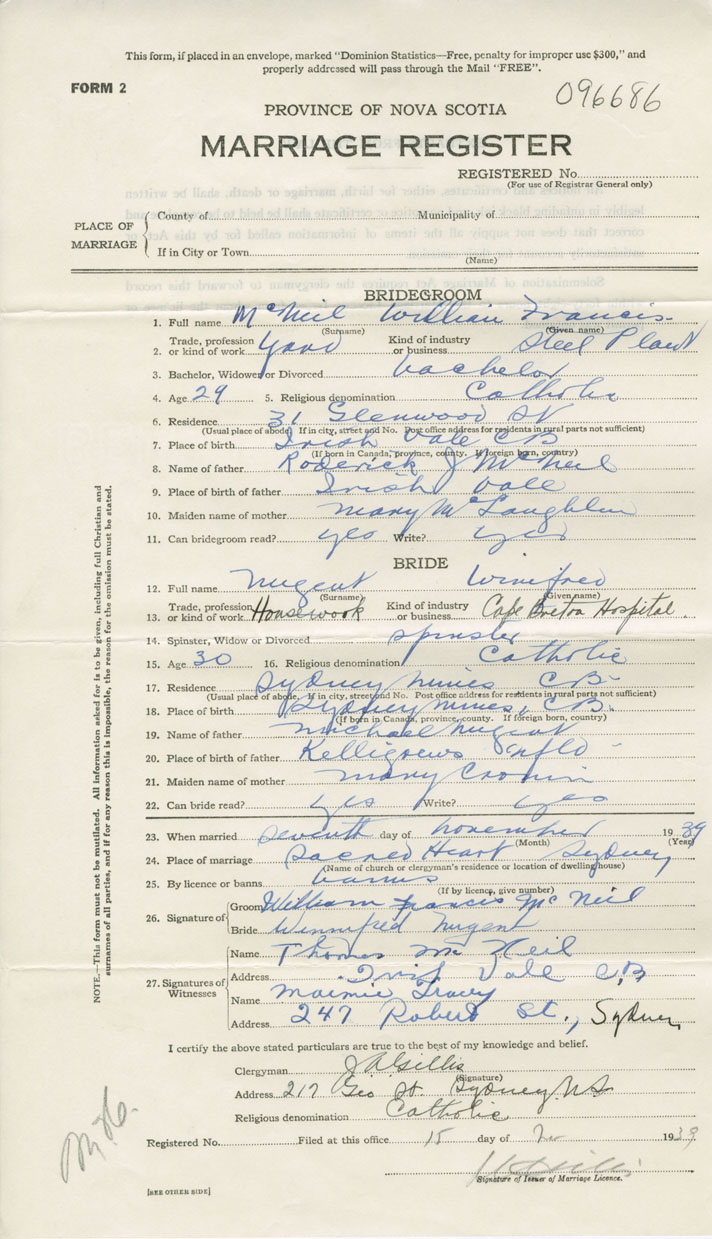 This form, if placed in an envelope, marked "Dominion Statistics—Free, penalty for improper use $300," and
properly addressed will pass through the Mail "FREE".
FORM 2
096686
PROVINCE OF NOVA SCOTIA
MARRIAGE REGISTER
REGISTERED No.
(For use of Registrar General only)
PLACE OF MARRIAGE
County of Municipality of
If in City or Town
(Name)
BRIDEGROOM
1. Full name McNeil William Francis
(Surname) (Given name)
2. Trade, profession or kind of work Yard Kind of industry or business Steel Plant
3. Bachelor, Widower or Divorced bachelor
4. Age 29 5. Religious denomination Catholic
6. Residence 31 Glenwood St
(Usual place of abode. If in city, street and No. Post office address for residents in rural parts not sufficient)
7. Place of birth Irish Vale CB
(If born in Canada, province, county. If foreign born, country)
8. Name of father Roderick J McNeil
9. Place of birth of father Irish Vale
10. Maiden name of mother Mary McLaughlin
11. Can bridegroom read? yes Write? yes
BRIDE
12. Full name Nugent Winifred
(Surname) (Given name)
13. Trade, profession or kind of work Housework Kind of industry or business Cape Breton Hospital.
14. Spinster, Widow or Divorced spinster
15. Age 30 16. Religious denomination Catholic
17. Residence Sydney Mines C.B.
(Usual place of abode. If in city, street and No. Post office address for residents in rural parts not sufficient)
18. Place of birth Sydney Mines, C.B.
(If born in Canada, province, county. If foreign born, country)
19. Name of father Michael Nugent
20. Place of birth of father Kelligrews Nfld
21. Maiden name of mother Mary Cronin
22. Can bride read? yes Write? yes
23. When married seventh day of November 1939
(Month) (Year)
24. Place of marriage Sacred Heart Sydney
(Name of church or clergyman's residence or location of dwelling house)
25. By licence or banns banns
(If by licence, give number)
26. Signature of
Groom William Francis McNeil
Bride Winnifred Nugent
27. Signatures of Witnesses
Name Thomas McNeil
Address Irish Vale C,B
Name Maimie Tracey
Address 247 Robert St., Sydney
I certify the above stated particulars are true to the best of my knowledge and belief.
Clergyman J A Gillis
(Signature)
Address 217 Geo St. Sydney N S
Religious denomination Catholic
Registered No. Filed at this office 15 day of 1939
Signature of Issuer of Marriage Licence.
[SEE OTHER SIDE]
NOTE.—This form must not be mutilated. All information asked for is to be given, including full Christian and
surnames of all parties, and if for any reason this is impossible, the reason for the omission must be stated.